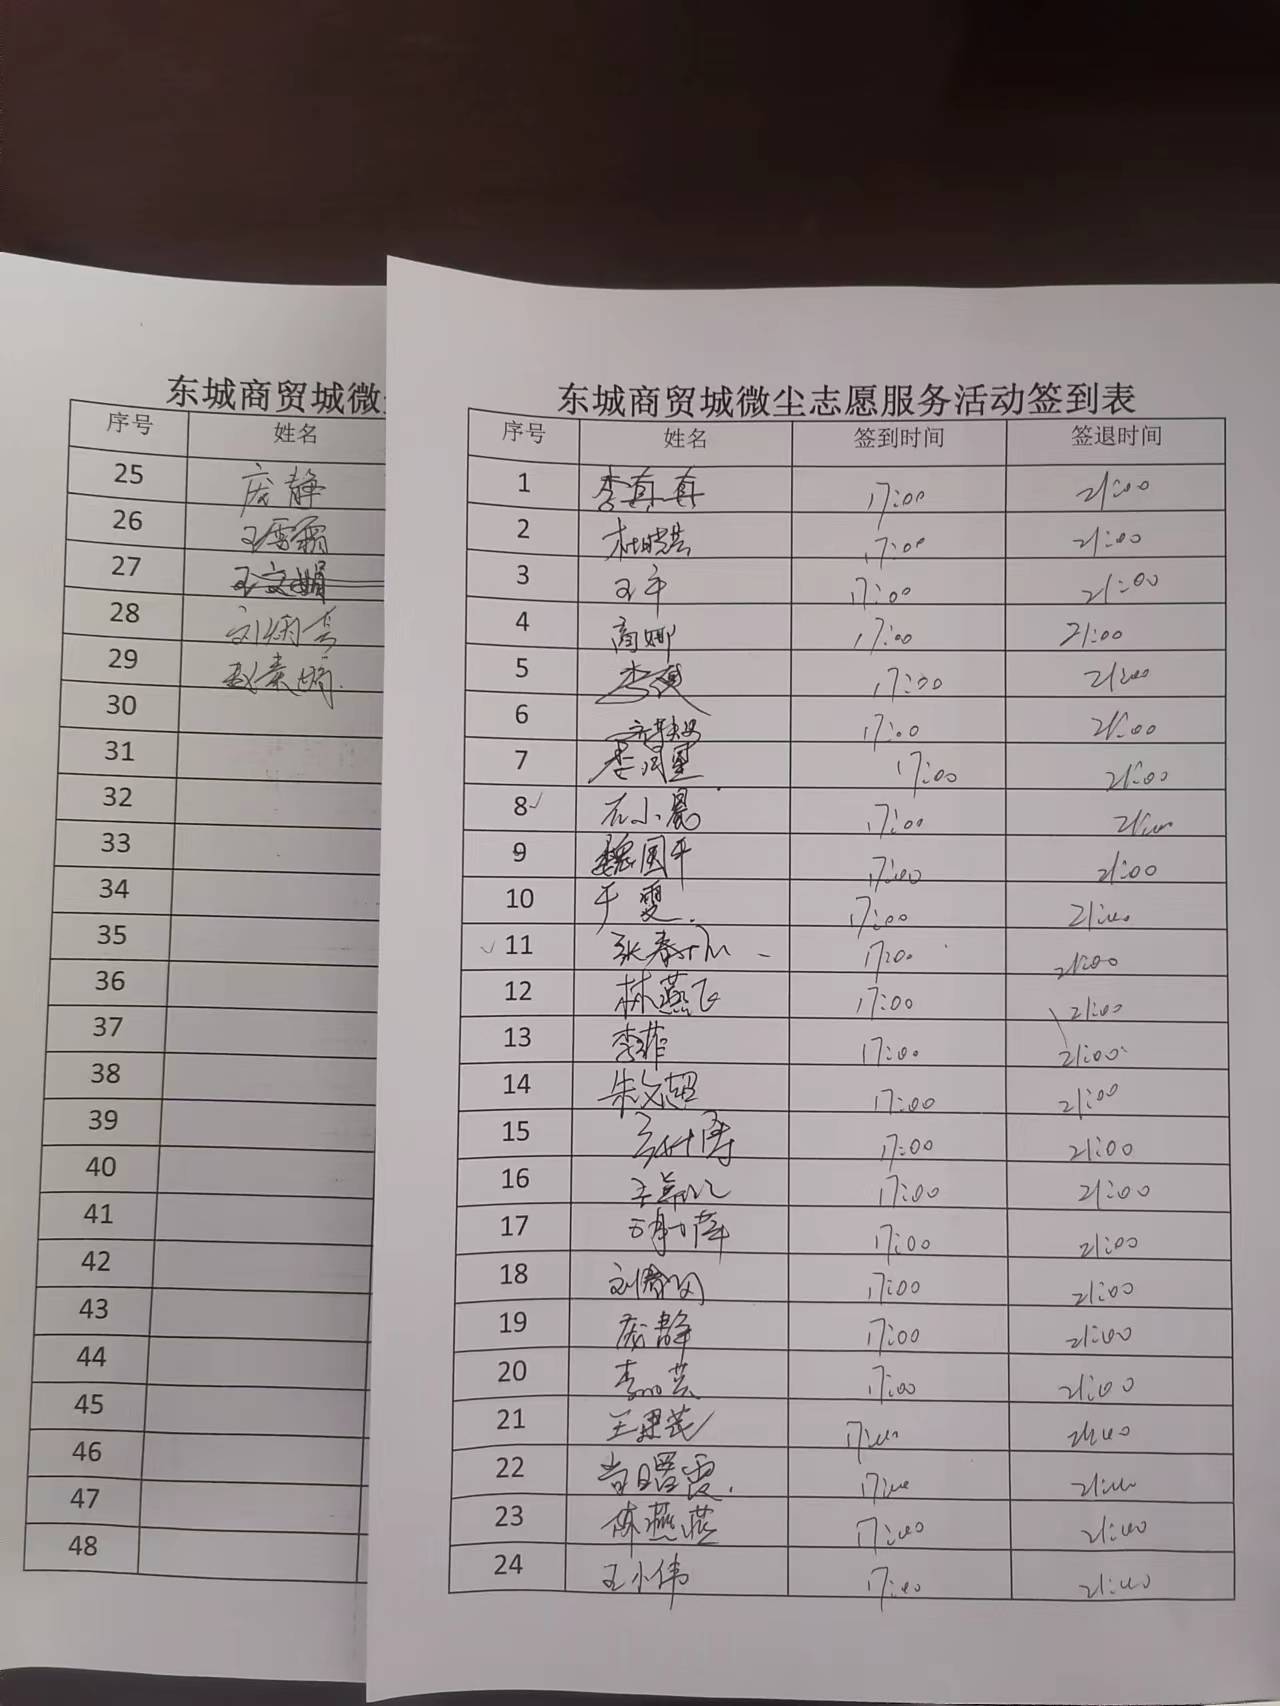 东城商贸城微
序号 姓名
25 庞静
26 王雪霜
27 王文娟
28 刘
29 赵素娟
30
31
32
33
34
35
36
37
38
39
40
41
42
43
44
45
46
47
48
东城商贸城微尘志愿服务活动签到表
序号 姓名 签到时间 签退时间
1 李真真 17:00 21:00
2 杜晓芸 17:00 21:00
3 王平 17:00 21:00
4 商娜 17:00 21:00
5 李 17:00 21:00
6 17:00 21:00
7 李润军 17:00 21:00
8 石小晨 17:00 21:00
9 魏国平 17:00 21:00
10 于雯 17:00 21:00
11 张春 17:00 21:00
12 林燕飞 17:00 21:00
13 李菲 17:00 21:00
14 朱文超 17:00 21:00
15 17:00 21:00
16 王 17:00 21:00
17 17:00 21:00
18 刘 17:00 21:00
19 庞静 17:00 21:00
20 李 17:00 21:00
21 王 17:00 21:00
22 肖曙霞 17:00 21:00
23 陈燕燕 17:00 21:00
24 王小伟 17:00 21:00